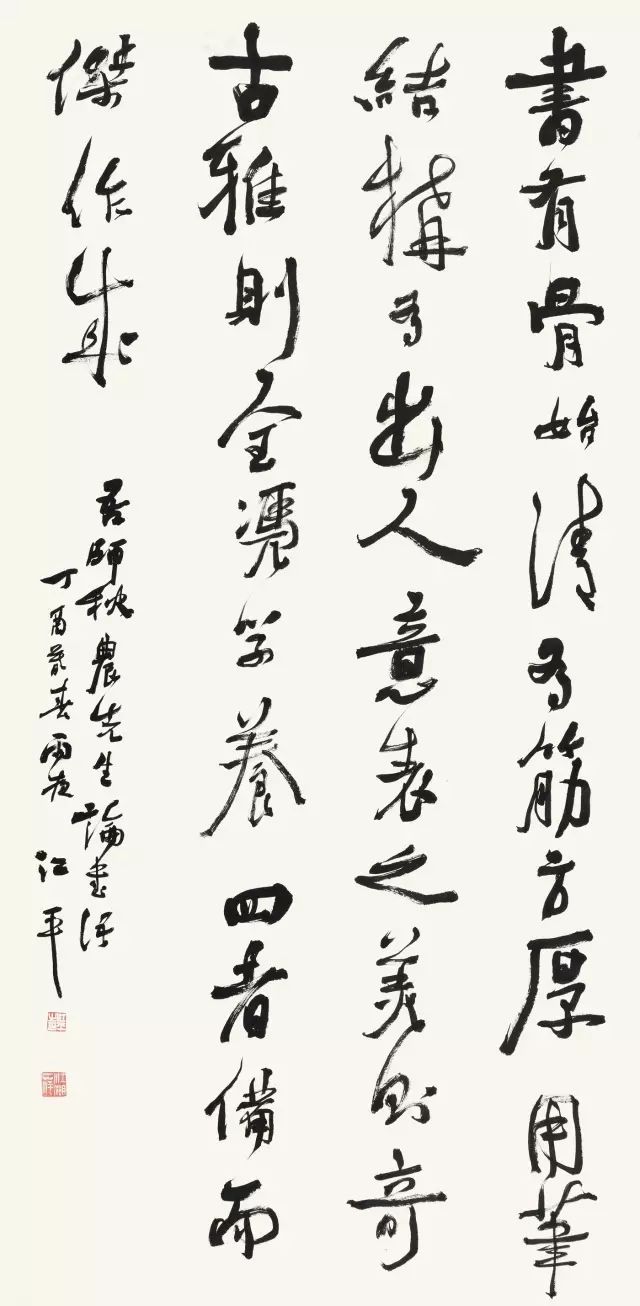 書有骨始清有筋方厚用筆
結構有出人意表之美則奇
古雅則全凴學養四者備而
傑作成
吾師秋農先生論書語
丁酉春雨夜江平